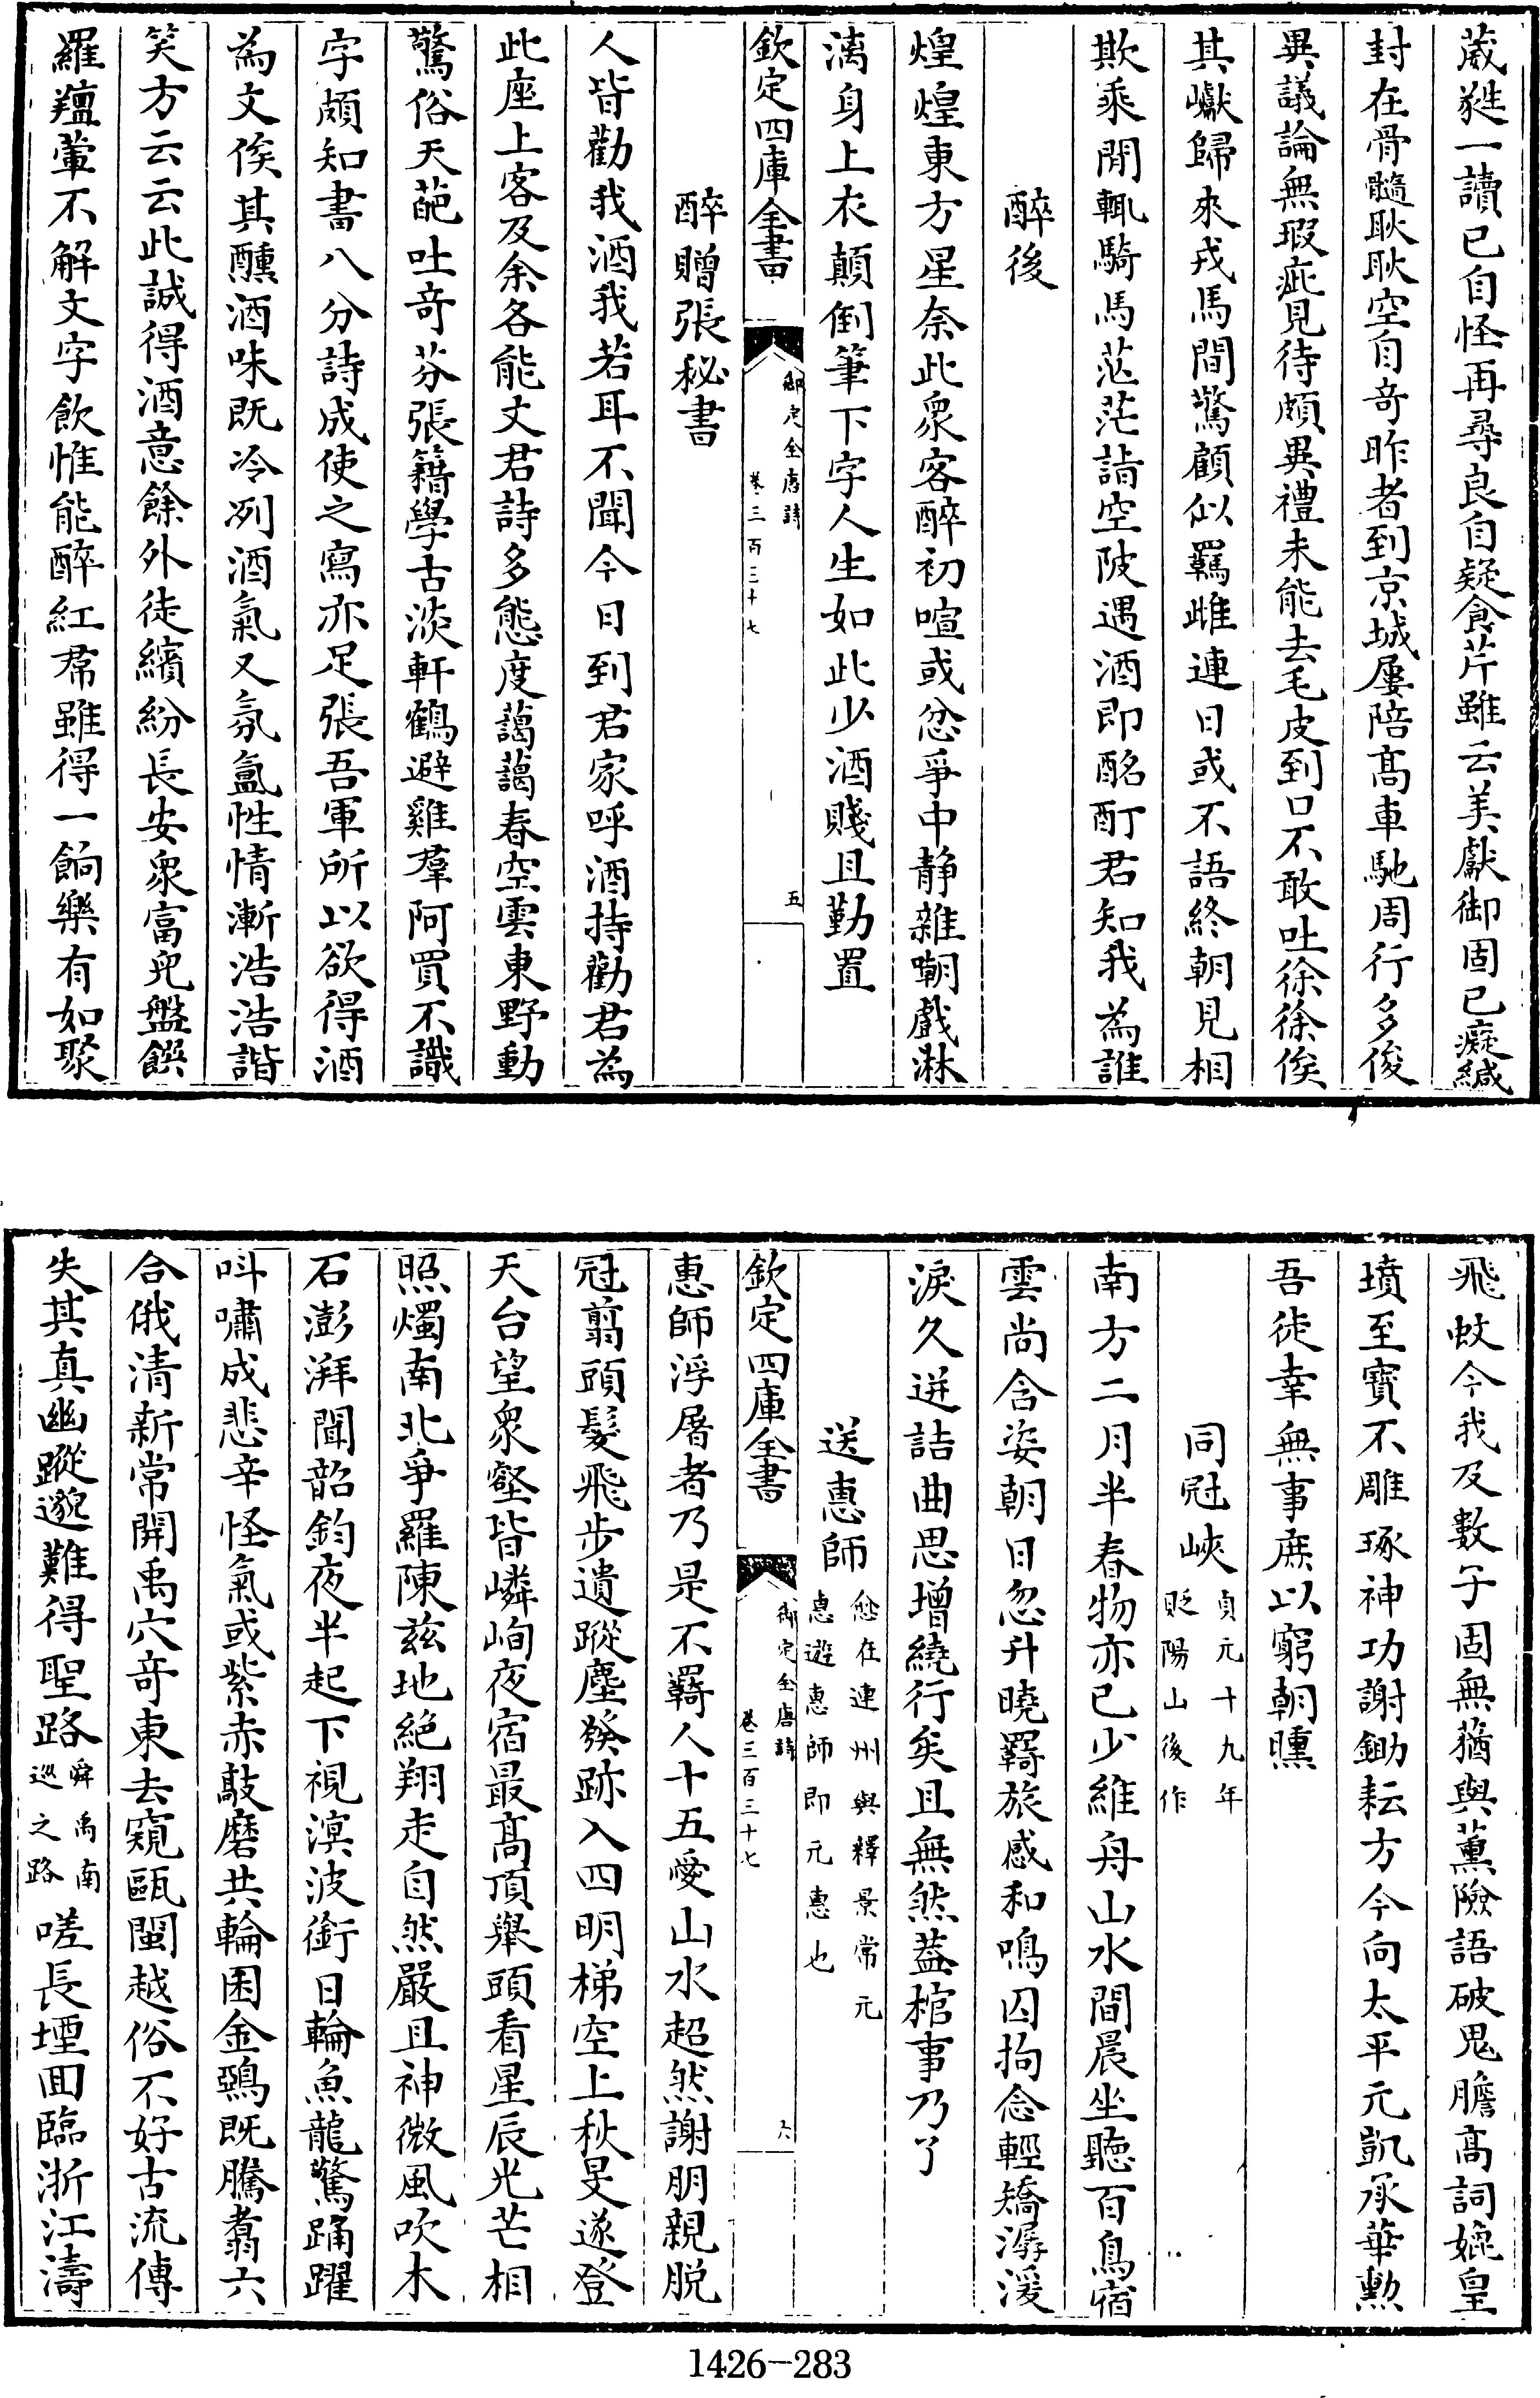 葳蕤一讀已自怪再尋良自疑食芹雖云美獻御固已癡緘
封在骨髓耿耿空自奇昨者到京城屢陪髙車馳周行多俊
異議論無瑕疵見待頗異禮未能去毛皮到口不敢吐徐徐俟
其巇歸來戎馬間驚顧似羈雌連日或不語終朝見相
欺乘閒輒騎馬茫茫詣空陂遇酒即酩酊君知我為誰
醉後
煌煌東方星奈此衆客醉初喧或忿爭中静雜嘲戲淋
漓身上衣顛倒筆下字人生如此少酒賤且勤置
欽定四庫全書
御定全唐詩
卷三百三十七
五
醉贈張秘書
人皆勸我酒我若耳不聞今日到君家呼酒持勸君為
此座上客及余各能文君詩多態度藹藹春空雲東野動
驚俗天葩吐奇芬張籍學古淡軒鶴避雞羣阿買不識
字頗知書八分詩成使之寫亦足張吾軍所以欲得酒
為文俟其醺酒味既冷冽酒氣又氛氲性情漸浩浩諧
笑方云云此誠得酒意餘外徒繽紛長安衆富兒盤饌
羅羶葷不解文字飲惟能醉紅帬雖得一餉樂有如聚
飛蚊今我及數子固無蕕與薰險語破鬼膽髙詞媲皇
墳至寶不雕琢神功謝鋤耘方今向太平元凱承華勲
吾徒幸無事庶以窮朝曛
同冠峽貞元十九年
貶陽山後作
南方二月半春物亦已少維舟山水間晨坐聽百鳥宿
雲尚含姿朝日忽升曉羇旅感和鳴囚拘念輕矯潺湲
淚久迸詰曲思增繞行矣且無然葢棺事乃了
送惠師愈在連州與釋景常元
惠遊惠師即元惠也
欽定四庫全書
御定全唐詩
卷三百三十七
六
惠師浮屠者乃是不羇人十五愛山水超然謝朋親脱
冠翦頭髮飛步遺蹤塵發跡入四明梯空上秋旻遂登
天台望衆壑皆嶙峋夜宿最髙頂舉頭看星辰光芒相
照燭南北爭羅陳茲地絶翔走自然嚴且神微風吹木
石澎湃聞韶鈞夜半起下視溟波銜日輪魚龍驚踊躍
呌嘯成悲辛怪氣或紫赤敲磨共輪囷金鵶既騰翥六
合俄清新常聞禹穴奇東去窺甌閩越俗不好古流傳
失其真幽蹤邈難得聖路舜禹南
巡之路嗟長堙囬臨浙江濤
1426-283